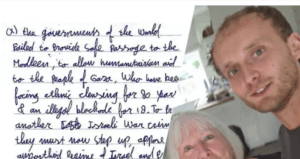 a) the governments of the world
failed to provide safe passage to the
Madleen, to allow humanitarian aid
to the People of Gaza, who have been
facing ethnic cleansing for 80 year
& an illegal blockade for 18. To
another Israeli War crim
they must now step up,
Regime of Israel and